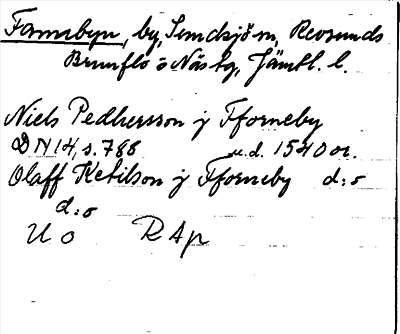 Fannbyn, by, Sundsjö sn, Revsunds
Brunflo o Näs tg, Jämtl. l.
Niels Pedhersson j Fforneby
DN 14, s. 788 u.d. 1540 or.
Olaff Ketilson j Fforneby d:o
d:o
U o R Ap